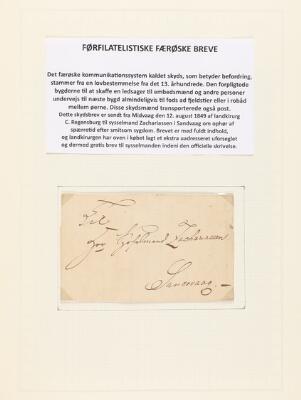 FØRFILATELISTISKE FÆRØSKE BREVE
Det færøske kommunikationssystem kaldet skyds, som betyder befordring,
stammer fra en lovbestemmelse fra det 13. århundrede. Den forpligtede
bygderne til at skaffe en ledsager til embedsmænd og andre personer
undervejs til næste bygd almindeligvis til fods ad fjeldstier eller i robåd
mellem øerne. Disse skydsmænd transporterede også post.
Dette skydsbrev er sendt fra Midvaag den 12. august 1849 af landkirurg
C. Regensburg til sysselmand Zachariassen i Sandvaag om ophør af
spærretid efter smitsom sygdom. Brevet er med fuldt indhold,
og landkirurgen har oven i købet lagt et ekstra aadresseret uforseglet
og dermed gratis brev til sysselmanden indeni den officielle skrivelse.
Til
Hrr Sysselmand Zachariasen
Sandevaag